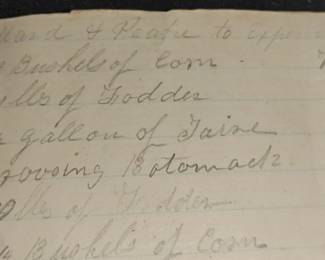 & Peake to Expen
Bushels of Corn . 7
lbs of Fodder
gallon of Taire
Crossing Botomack.
lbs of Fodder
Bushels of Corn